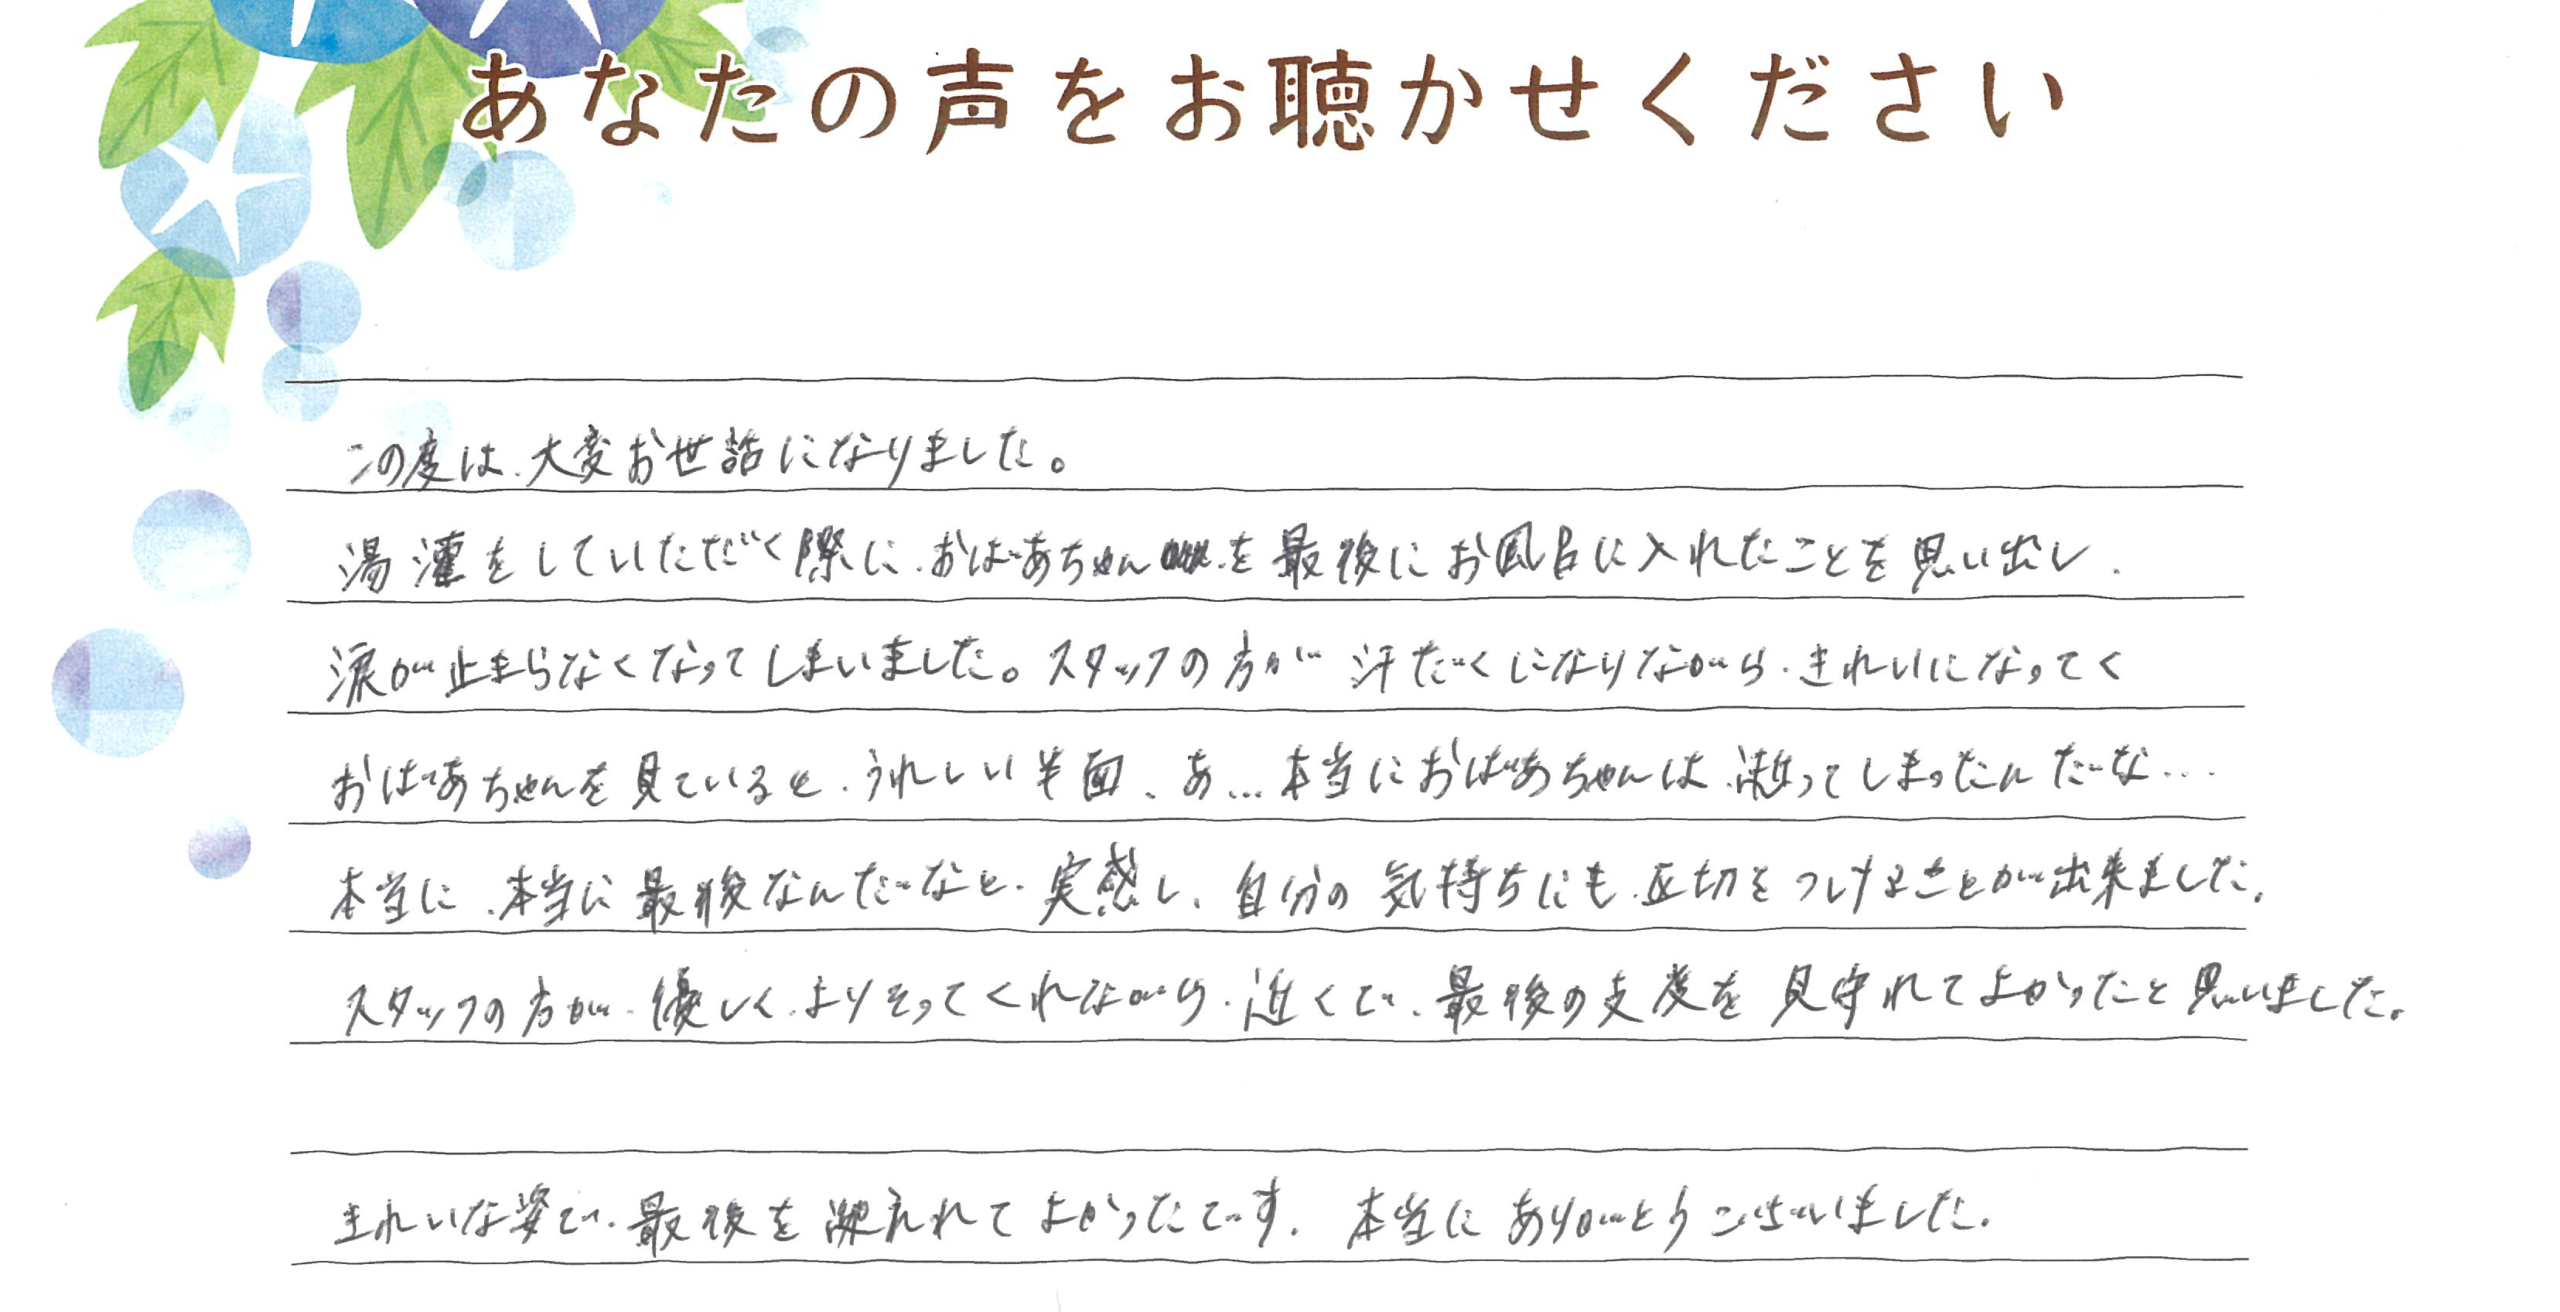 あなたの声をお聴かせください
この度は、大変お世話になりました。
湯灌をしていただく際に、おばあちゃんを最後にお風呂に入れたことを思い出し、
涙が止まらなくなってしまいました。スタッフの方が汗だくになりながら、きれいになってく
おばあちゃんを見ていると、うれしい半面、あ…本当におばあちゃんは、逝ってしまったんだな…
本当に、本当に最後なんだなと、実感し、自分の気持ちにも区切をつけることが出来ました。
スタッフの方が、優しく、よりそってくれながら、近くで、最後の支度を見守れてよかったと思いました。
きれいな姿で、最後を迎えれてよかったです。本当にありがとうございました。